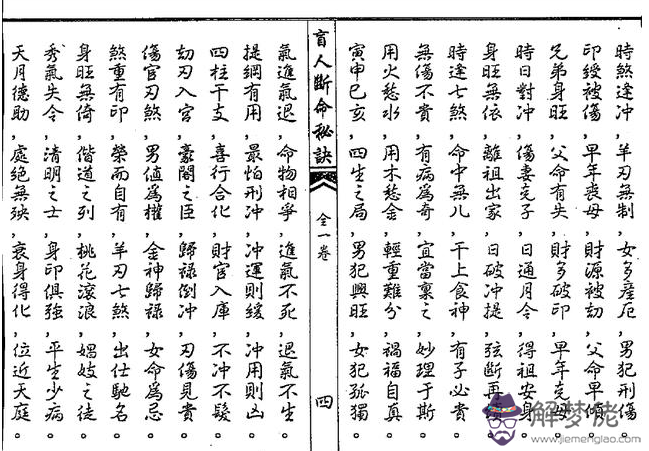 時煞逢冲,羊刃無制,女多產厄,男犯刑傷。
印綬被傷,早年喪母,財源被劫,父命早傾。
兄弟身旺,父命有失,財多破印,早年克母。
時日對冲,傷妻克子,日通月令,得祖安身。
身旺無依,離祖出家,日破冲提,弦斷再續。
時逢七煞,命中無兒,干上食神,有子必貴。
無傷不貴,有病為奇,宜當稟之,妙理于斯。
用火愁水,用木愁金,輕重難分,禍福自真。
寅申巳亥,四生之局,男犯興旺,女犯孤獨。
盲人斷命秘訣
全一卷
四
氣進氣退,命物相爭,進氣不死,退氣不生。
提綱有用,最怕刑冲,冲運則緩,冲用則凶。
四柱干支,喜行合化,財官入庫,不冲不發。
劫刃入官,豪閣之臣,歸祿倒冲,刃傷見貴。
傷官刃煞,男值為權,金神歸祿,女命為忌。
煞重有印,榮而自有,羊刃七煞,出仕馳名。
身旺無倚,僧道之列,桃花滾浪,娼妓之徒。
秀氣失令,清明之士,身印俱強,平生少病。
天月德助,處絕無殃,衰身得化,位近天庭。
解梦能
www.jiemenglao.com